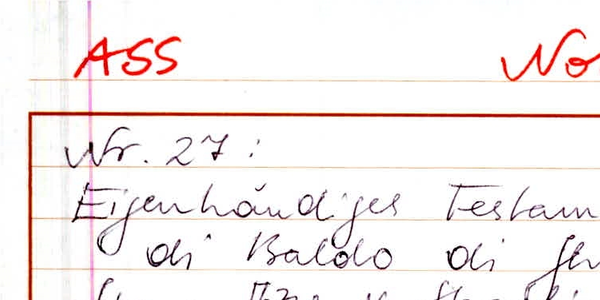 ASS No
Nr. 27:
Eigenhändiges Testam
di Baldo di